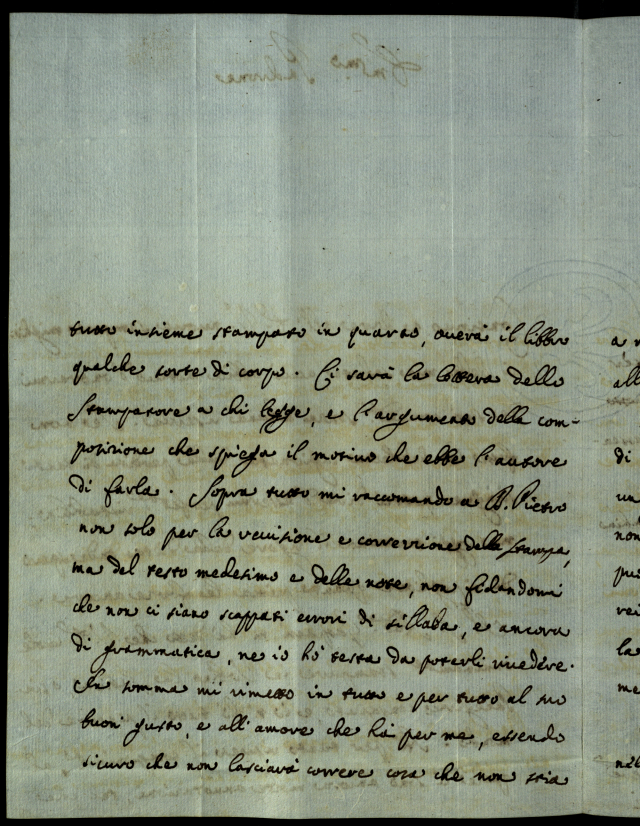 tutto insieme stampato in quarto, auerà il libbro
qualche sorte di corpo. Ci sarà la lettera dello
Stampatore a chi legge, e l'argumento della com=
posizione che spiega il motiuo che ebbe l'autore
di farla. Sopra tutto mi raccomando a D. Pietro
non solo per la reuisione e correzzione della stampa,
ma del testo medesimo e delle note, non fidandomi
che non ci siano scappati errori di sillaba, e ancora
di grammatica, ne io hò testa da poterli riuedére.
In somma mi rimetto in tutto e per tutto al suo
buon gusto, e all'amore che hà per me, essendo
sicuro che non lasciarà correre cosa che non stia
a,
all
di
un
non
rei
la
me